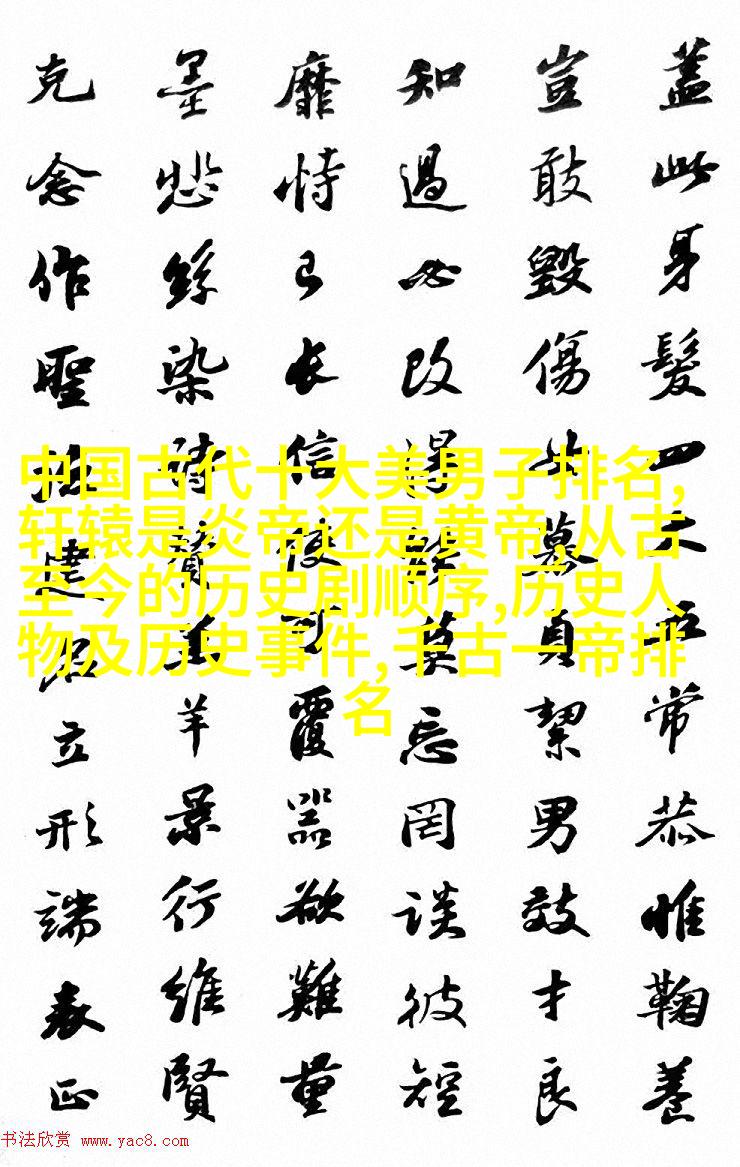 蓋此身髮四大五常恭惟鞠養
豈敢毀傷女慕貞絜男效才良
知過必改得能莫忘罔談彼短
靡恃己長信使可覆器欲難量
墨悲絲染詩贊羔羊景行維賢
克念作聖德建名立形端表正
中国古代十大美男子排名,
轩辕是炎帝还是黄帝,从古
至今的历史剧顺序,历史人
物及历史事件,千古一帝排
名
书法欣赏 www.yac8.com